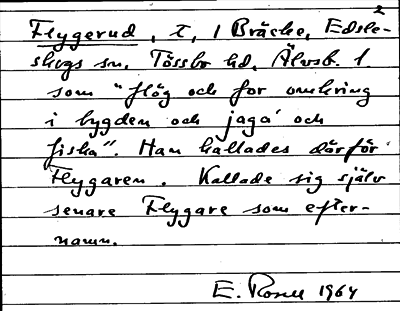 2
Flygerud, t, 1 Bräcke, Edsle-
skogs sn. Tössbo hd. Älvsb. l.
som "flög och for omkring
i bygden och jaga' och
fiska". Han kallades därför
Flygaren. Kallade sig själv
senare Flygare som efter-
namn.
E. Rosell 1964